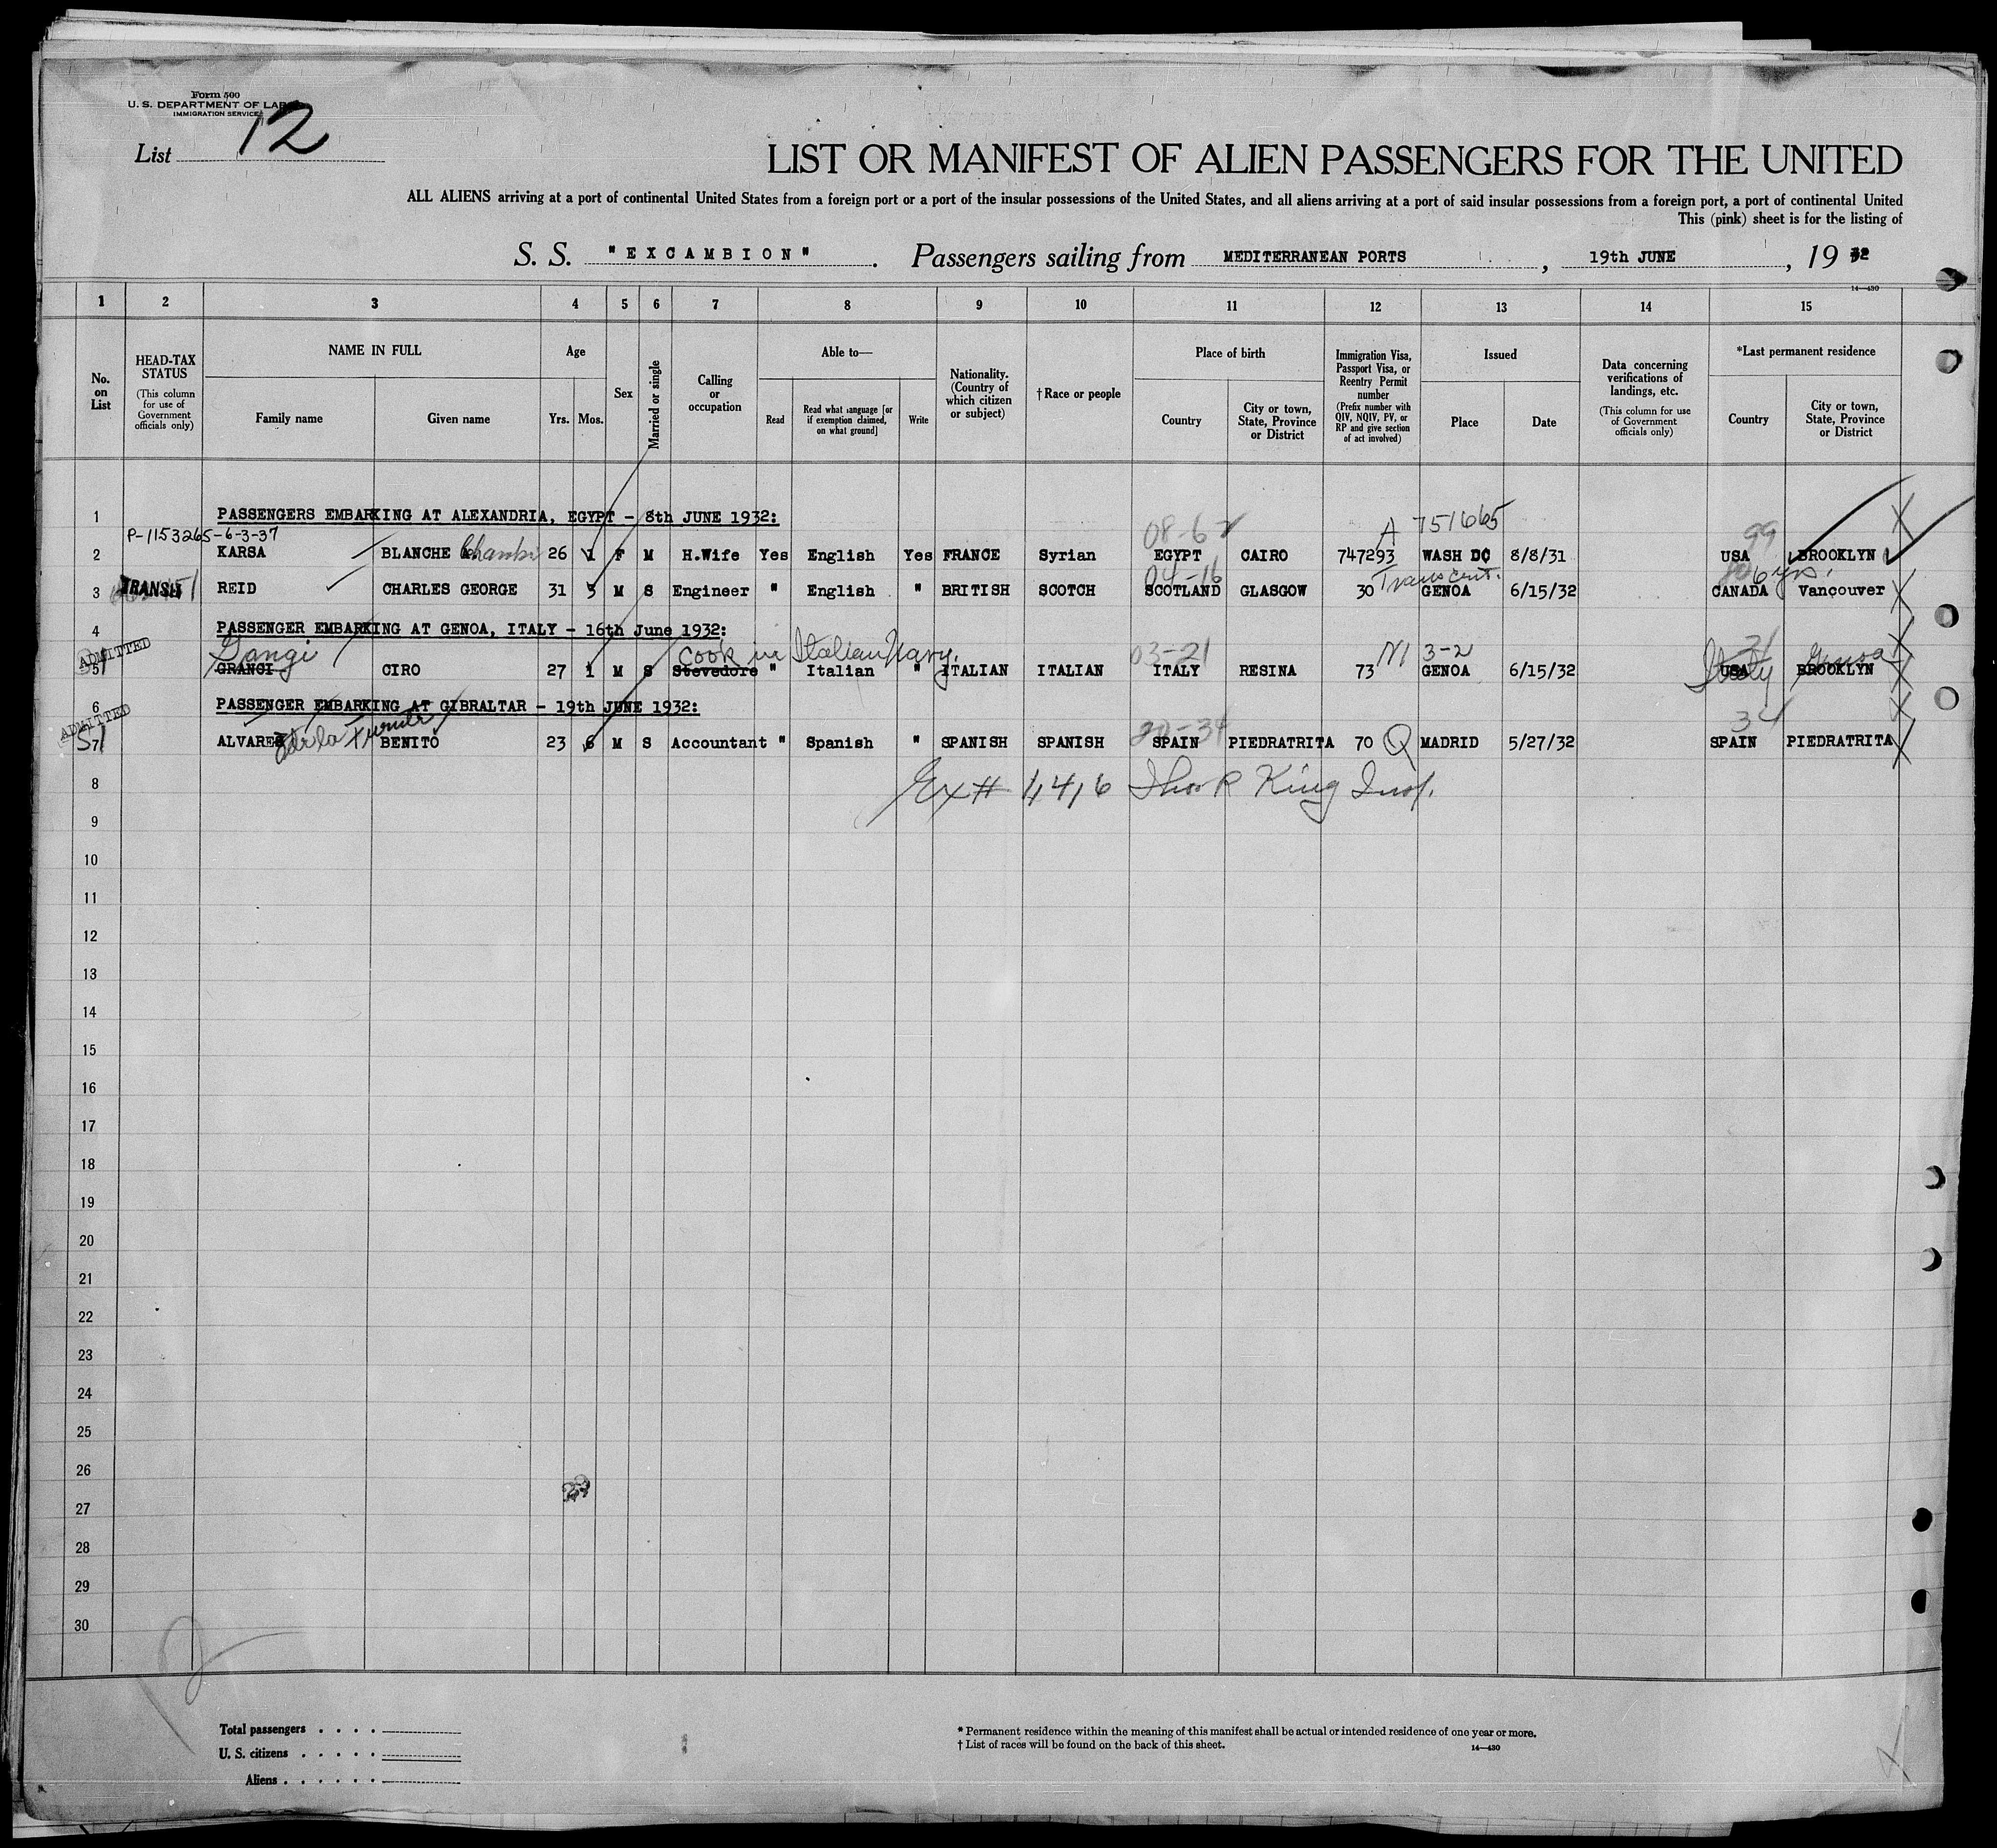 Form 500
U. S. DEPARTMENT OF LABOR
IMMIGRATION SERVICE
List 12
LIST OR MANIFEST OF ALIEN PASSENGERS FOR THE UNITED
ALL ALIENS arriving at a port of continental United States from a foreign port or a port of the insular possessions of the United States, and all aliens arriving at a port of said insular possessions from a foreign port, a port of continental United
This (pink) sheet is for the listing of
S. S. "EXCAMBION". Passengers sailing from MEDITERRANEAN PORTS, 19th JUNE, 19 32
14—430
1 2 3 4 5 6 7 8 9 10 11 12 13 14 15
No. on List
HEAD-TAX STATUS (This column for use of Government officials only)
NAME IN FULL Family name Given name
Age Yrs. Mos.
Sex
Married or single
Calling or occupation
Able to— Read Read what language [or if exemption claimed, on what ground] Write
Nationality. (Country of which citizen or subject)
†Race or people
Place of birth Country City or town, State, Province or District
Immigration Visa, Passport Visa, or Reentry Permit number (Prefix number with QIV, NQIV, PV, or RP and give section of act involved)
Issued Place Date
Data concerning verifications of landings, etc. (This column for use of Government officials only)
*Last permanent residence Country City or town, State, Province or District
1 PASSENGERS EMBARKING AT ALEXANDRIA, EGYPT - 8th JUNE 1932:
P-1153265-6-3-37 08-6 A 751665 99
2 KARSA BLANCHE 26 1 F M H.Wife Yes English Yes FRANCE Syrian EGYPT CAIRO 747293 WASH DC 8/8/31 USA BROOKLYN
04-16 Trans cert. 6 yrs.
3 TRANSIT REID CHARLES GEORGE 31 3 M S Engineer " English " BRITISH SCOTCH SCOTLAND GLASGOW 30 GENOA 6/15/32 CANADA Vancouver
4 PASSENGER EMBARKING AT GENOA, ITALY - 16th June 1932:
ADMITTED Gangi Cook in Italian Navy. 03-21 3-2 21 Italy
5 GRANGI CIRO 27 1 M S Stevedore " Italian " ITALIAN ITALIAN ITALY RESINA 73 GENOA 6/15/32 USA BROOKLYN
6 PASSENGER EMBARKING AT GIBRALTAR - 19th JUNE 1932:
ADMITTED 34
7 ALVAREZ BENITO 23 6 M S Accountant " Spanish " SPANISH SPANISH SPAIN PIEDRATRITA 70 Q MADRID 5/27/32 SPAIN PIEDRATRITA
8 Ex# 1416 King
9
10
11
12
13
14
15
16
17
18
19
20
21
22
23
24
25
26
27
28
29
30
Total passengers
U. S. citizens
Aliens
* Permanent residence within the meaning of this manifest shall be actual or intended residence of one year or more.
† List of races will be found on the back of this sheet.
14—430